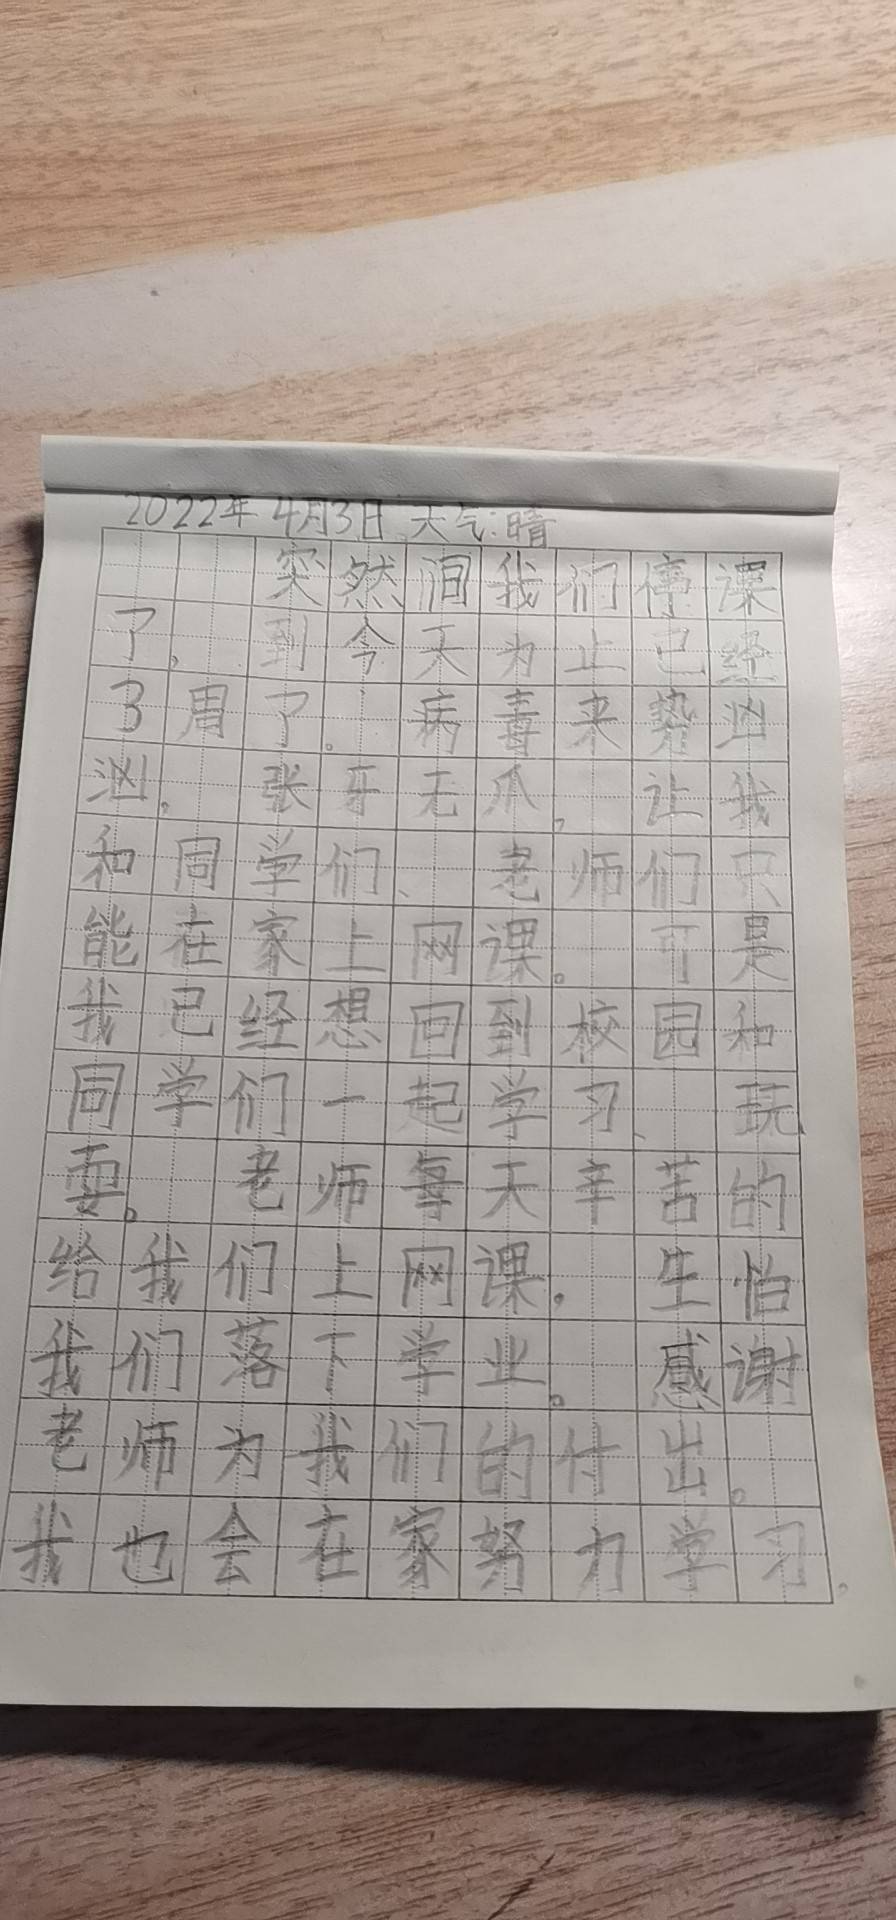 2022年4月3日 天气:晴
突然间我们停课
了，到今天为止已经
3周了。病毒来势汹
汹，张牙无爪，让我
和同学们、老师们只
能在家上网课。可是
我已经想回到校园和
同学们一起学习、玩
耍。老师每天辛苦的
给我们上网课，生怕
我们落下学业。感谢
老师为我们的付出。
我也会在家努力学习，